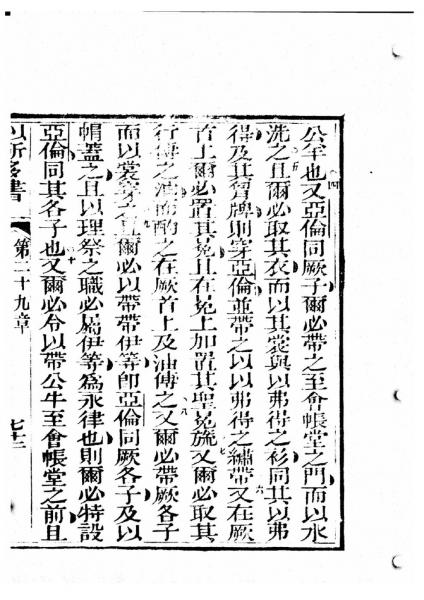 公羊也又四亞倫同厥子爾必帶之至會帳堂之門而以水
洗之且五爾必取其衣而以其裳與以弗得之衫同其以弗
得及其胷牌則穿亞倫並帶之以以弗得之繡帶又六在厥
首上爾必置其冕且在冕上加置其聖冕旒又七爾必取其
行傅之油而酌之在厥首上及油傅之又八爾必帶厥各子
而以裳穿之且九爾必以帶帶伊等即亞倫同厥各子及以
帽蓋之且以理祭之職必屬伊等為永律也則爾必特設
亞倫同其各子也又十爾必令以帶公牛至會帳堂之前且
以所多書 第二十九章 七十三